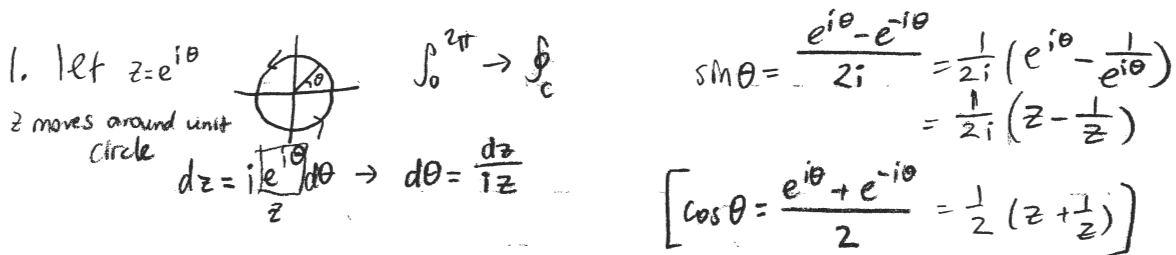 1. let z=e^{iθ}
z moves around unit circle
θ
∫_0^{2π} → ∮_C
dz = i e^{iθ} dθ → dθ = dz/iz
z
sinθ = (e^{iθ} - e^{-iθ})/2i = 1/2i (e^{iθ} - 1/e^{iθ})
= 1/2i (z - 1/z)
[cosθ = (e^{iθ} + e^{-iθ})/2 = 1/2 (z + 1/z)]